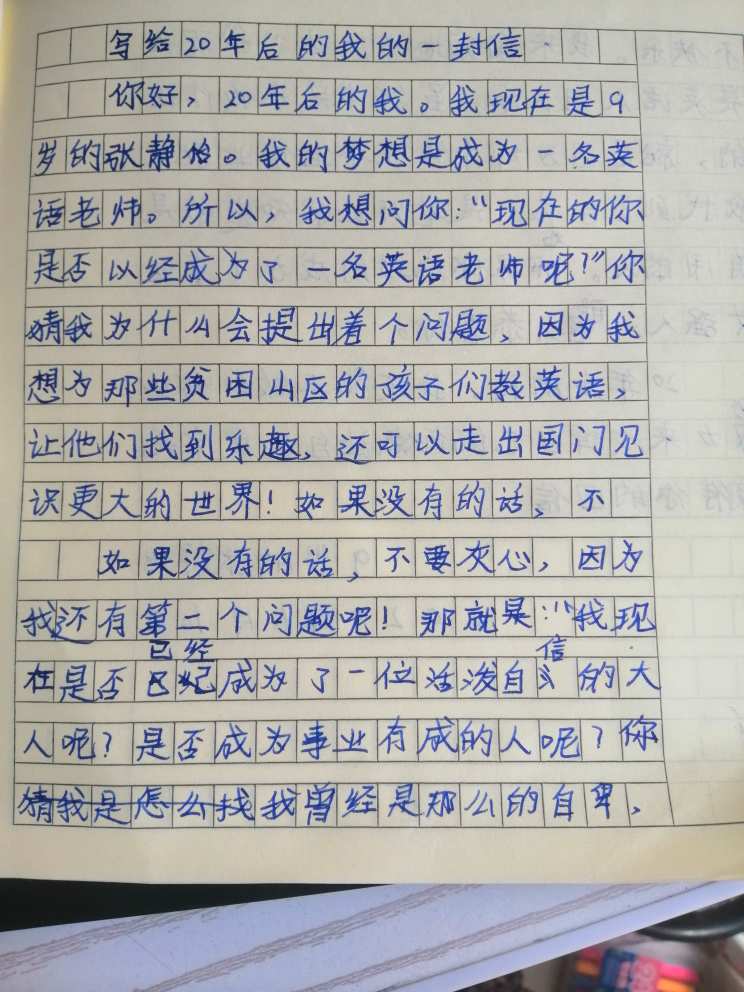 写给20年后的我的一封信
你好，20年后的我。我现在是9
岁的张静怡。我的梦想是成为一名英
语老师。所以，我想问你：“现在的你
是否以经成为了一名英语老师呢？”你
猜我为什么会提出着个问题，因为我
想为那些贫困山区的孩子们教英语，
让他们找到乐趣，还可以走出国门见
识更大的世界！如果没有的话，不
如果没有的话，不要灰心，因为
我还有第二个问题呢！那就是：“我现
已经 信
在是否 成为了一位活泼自 的大
人呢？是否成为事业有成的人呢？你
猜我是怎么找我曾经是那么的自卑，